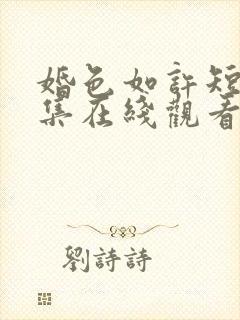 婚色如許短
集在綫觀看
劉詩詩